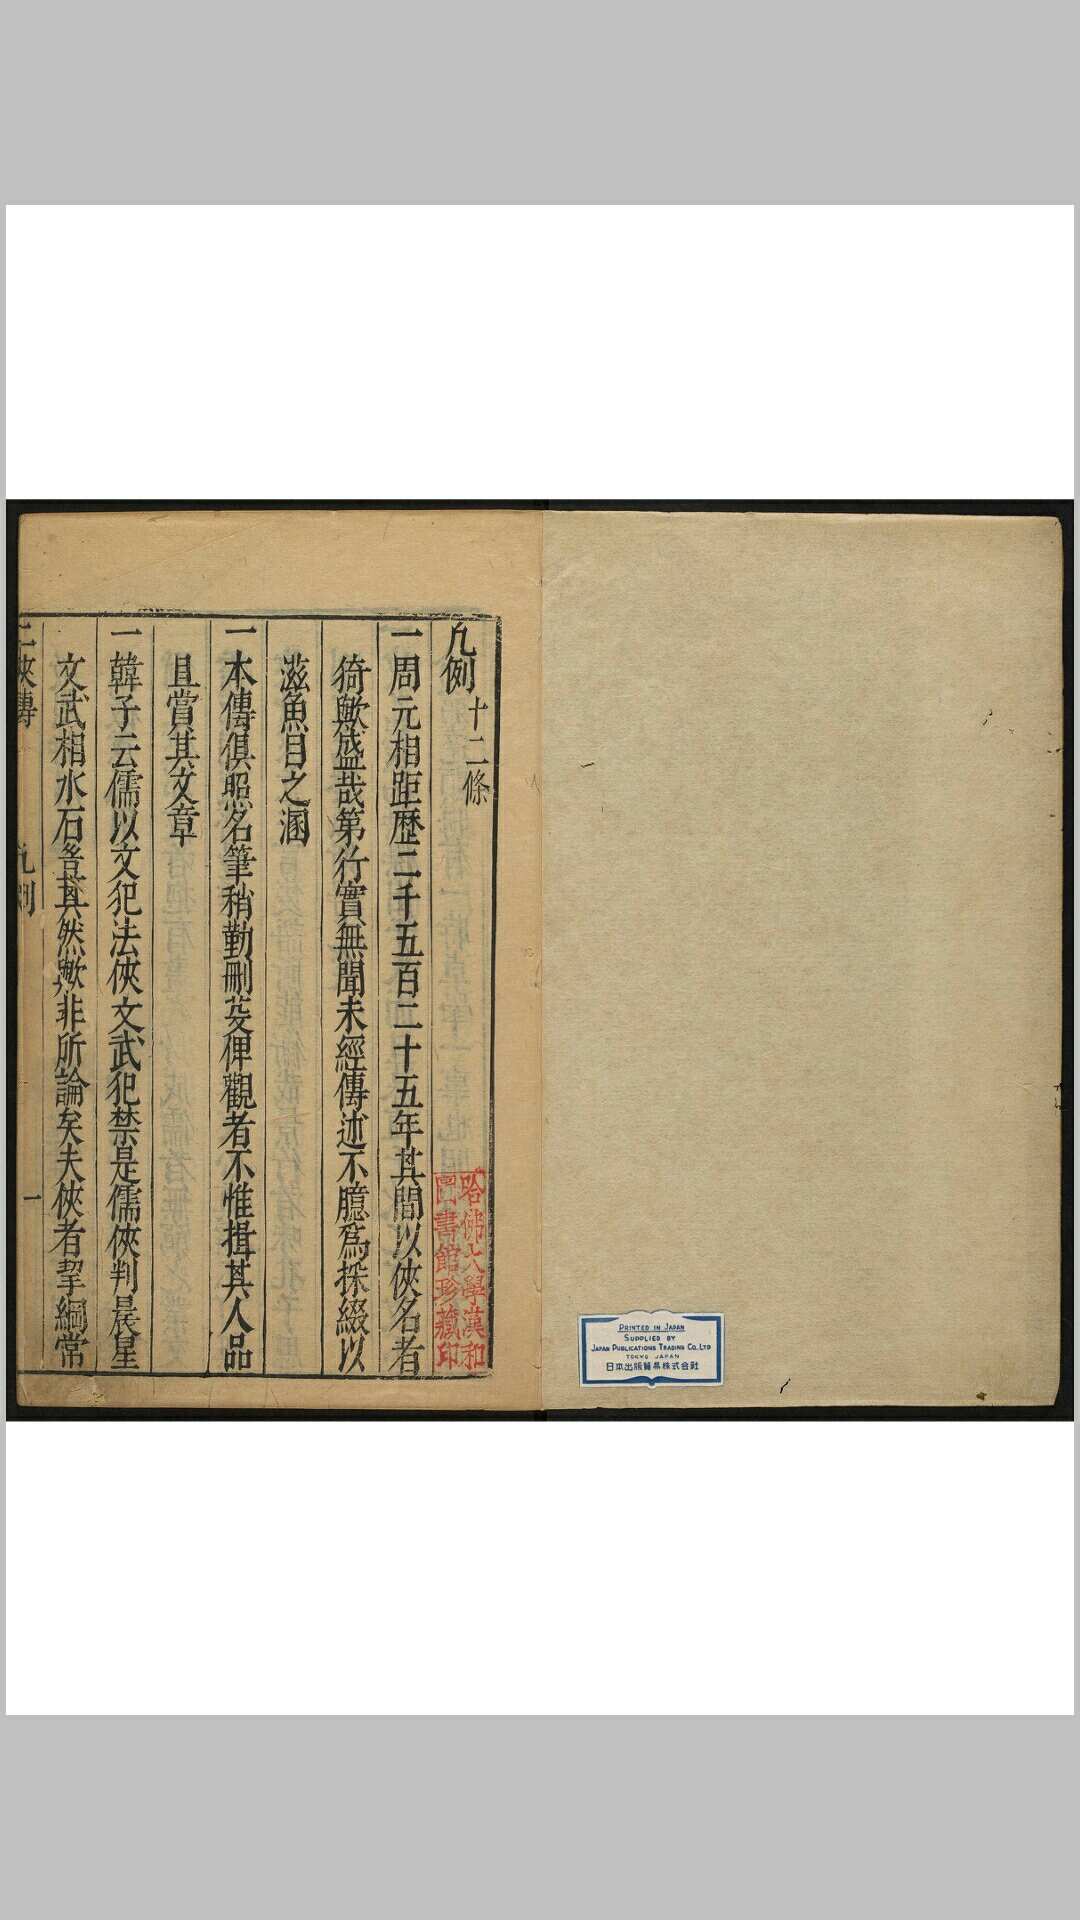 凡例十二條
一周元相距歷二千五百二十五年其間以俠名者
猗歟盛哉第行實無聞未經傳述不臆爲採綴以
滋魚目之溷
一本傳俱照名筆稍勤刪芟俾觀者不惟揖其人品
且賞其文章
一韓子云儒以文犯法俠文武犯禁是儒俠判晨星
文武相水石咎其然歟非所論矣夫俠者挈綱常
二俠傳 凡例 一
哈佛大學漢和
圖書館珍藏印
PRINTED IN JAPAN
SUPPLIED BY
JAPAN PUBLICATIONS TRADING CO., LTD
TOKYO JAPAN
日本出版貿易株式会社